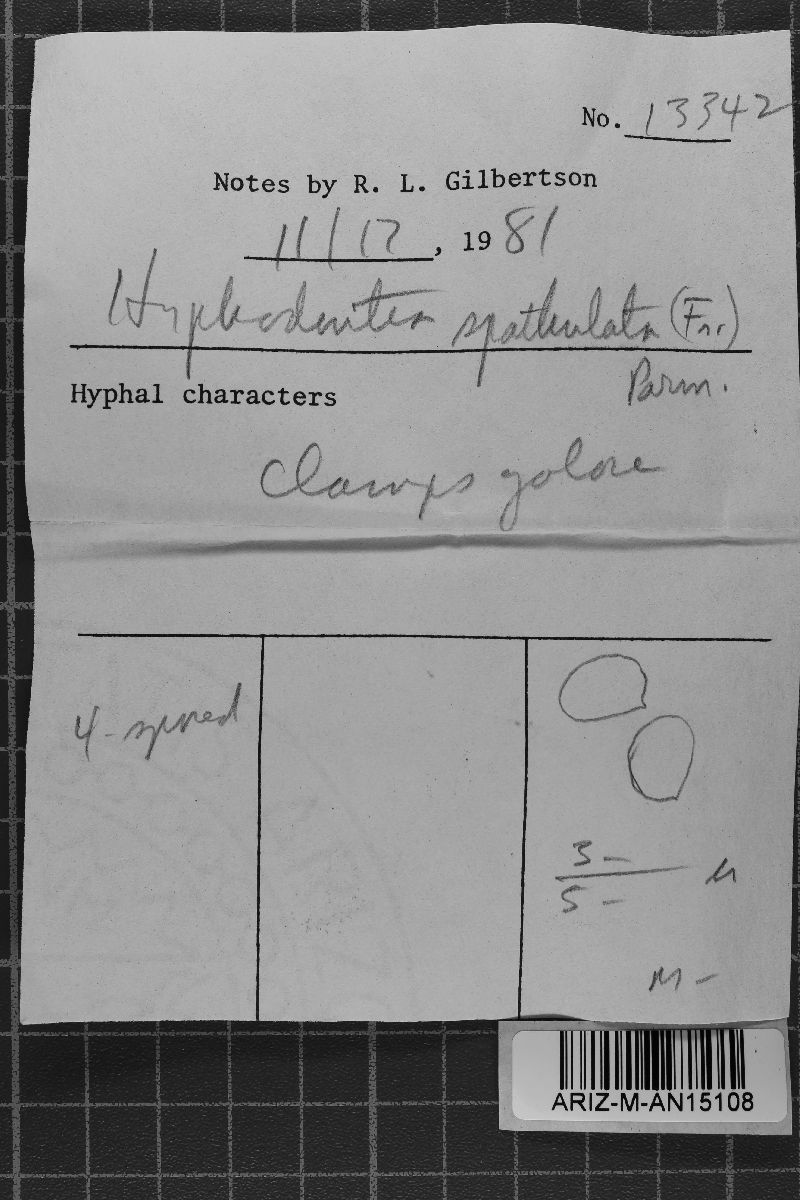 No. 13342
Notes by R. L. Gilbertson
11/17, 1981
Hyphodontia spathulata (Fr.)
Parm.
Hyphal characters
Clamps galore
4-spored
3 -
5 - µ
M -
ARIZ-M-AN15108